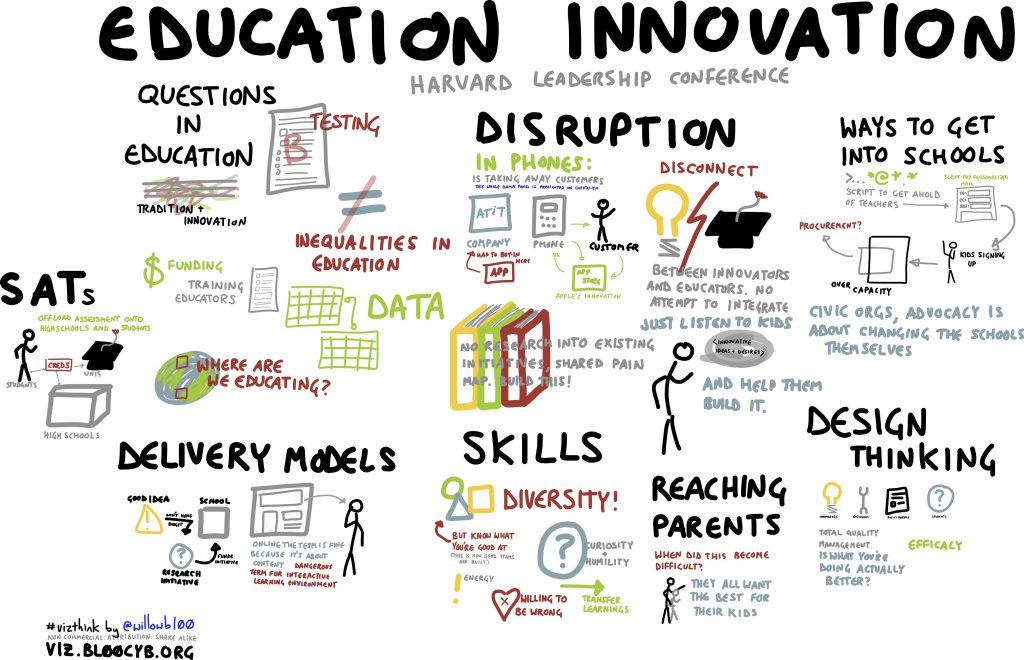 EDUCATION INNOVATION
HARVARD LEADERSHIP CONFERENCE
QUESTIONS
IN
EDUCATION
TRADITION +
INNOVATION
B
TESTING
INEQUALITIES IN
EDUCATION
$ FUNDING
TRAINING
EDUCATORS
DATA
WHERE ARE
WE EDUCATING?
SATs
OFFLOAD ASSESSMENT ONTO
HIGHSCHOOLS AND STUDENTS
STUDENTS
CREDS
UNIS
HIGH SCHOOLS
DISRUPTION
IN PHONES:
IS TAKING AWAY CUSTOMERS
THE WHOLE DAMN PANEL IS PREDICATED ON CAPITALISM
AT&T
COMPANY
PHONE
CUSTOMER
HAD TO BUY-IN
HERE
APP
APP
STORE
APPLE'S INNOVATION
NO RESEARCH INTO EXISTING
INITIATIVES, SHARED PAIN
MAP. BUILD THIS!
DISCONNECT
BETWEEN INNOVATORS
AND EDUCATORS. NO
ATTEMPT TO INTEGRATE
JUST LISTEN TO KIDS
<INNOVATIVE
IDEAS + DESIRES>
AND HELP THEM
BUILD IT.
WAYS TO GET
INTO SCHOOLS
>... *@+.*
SCRIPT TO GET AHOLD
OF TEACHERS
SCRIPT FOR PERSONALIZED
MAIL
PROCUREMENT?
OVER CAPACITY
KIDS SIGNING
UP
CIVIC ORGS, ADVOCACY IS
ABOUT CHANGING THE SCHOOLS
THEMSELVES
DELIVERY MODELS
GOOD IDEA
!
DON'T HAVE
SCHOOL
?
FUNDS
INITIATIVE
RESEARCH
INITIATIVE
ONLINE THE TERM IS FINE
BECAUSE IT'S ABOUT
CONTENT DANGEROUS
TERM FOR INTERACTIVE
LEARNING ENVIRONMENT
SKILLS
DIVERSITY!
BUT KNOW WHAT
YOU'RE GOOD AT
(THIS IS HOW GOOD TEAMS
ARE BUILT)
?
CURIOSITY
+
HUMILITY
! ENERGY
X WILLING TO
BE WRONG
TRANSFER
LEARNINGS
REACHING
PARENTS
WHEN DID THIS BECOME
DIFFICULT?
THEY ALL WANT
THE BEST FOR
THEIR KIDS
DESIGN
THINKING
?
STUDENTS
TOTAL QUALITY
MANAGEMENT
IS WHAT YOU'RE
DOING ACTUALLY
BETTER?
EFFICACY
#vizthink by @willowbl00
NON COMMERCIAL: ATTRIBUTION: SHARE ALIKE
VIZ.BL00CYB.ORG